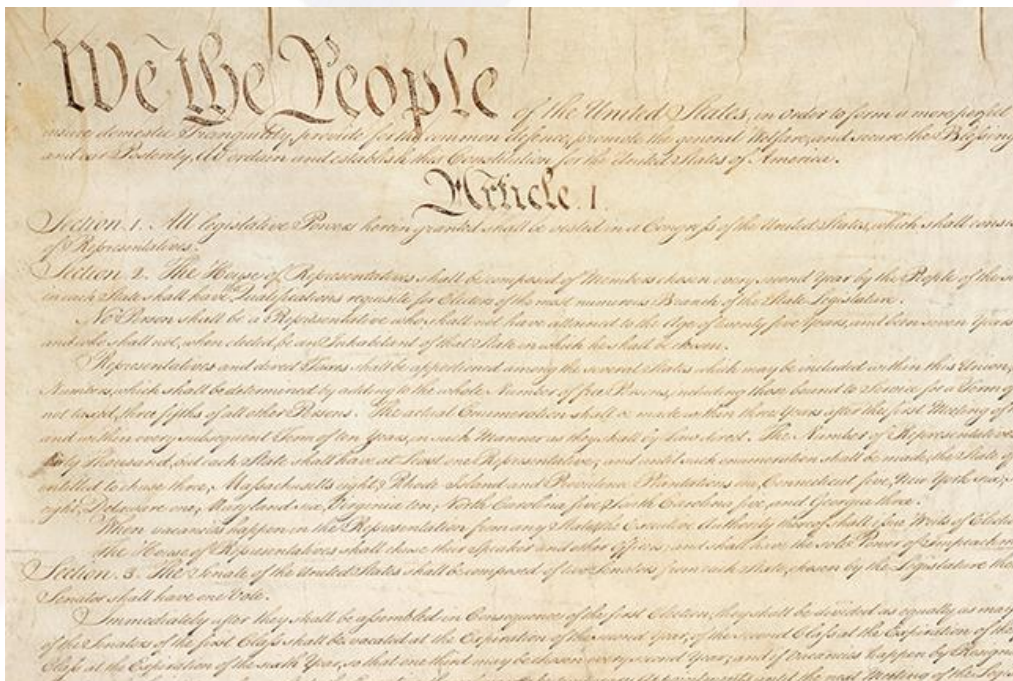 We the People of the United States, in order to form a more perfect
insure domestic Tranquility, provide for the common defence, promote the general Welfare, and secure the Blessing
and our Posterity, do ordain and establish this Constitution for the United States of America.
Article. I.
Section. 1. All legislative Powers herein granted shall be vested in a Congress of the United States, which shall consis
of Representatives.
Section. 2. The House of Representatives shall be composed of Members chosen every second Year by the People of the s
in each State shall have Qualifications requisite for Electors of the most numerous Branch of the State Legislature.
No Person shall be a Representative who shall not have attained to the Age of twenty five Years, and been seven Years
and who shall not, when elected, be an Inhabitant of that State in which he shall be chosen.
Representatives and direct Taxes shall be apportioned among the several States which may be included within this Union,
Numbers, which shall be determined by adding to the whole Number of free Persons, including those bound to Service for a Term of
not taxed, three fifths of all other Persons. The actual Enumeration shall be made within three Years after the first Meeting of
and within every subsequent Term of ten Years, in such Manner as they shall by Law direct. The Number of Representatives
thirty Thousand, but each State shall have at Least one Representative; and until such enumeration shall be made, the State of
entitled to chuse three, Massachusetts eight, Rhode Island and Providence Plantations one, Connecticut five, New York six,
eight, Delaware one, Maryland six, Virginia ten, North Carolina five, South Carolina five, and Georgia three.
When vacancies happen in the Representation from any State, the Executive Authority thereof shall issue Writs of Electio
The House of Representatives shall chuse their Speaker and other Officers; and shall have the sole Power of Impeachm
Section. 3. The Senate of the United States shall be composed of two Senators from each State, chosen by the Legislature the
Senator shall have one Vote.
Immediately after they shall be assembled in Consequence of the first Election, they shall be divided as equally as may
of the Senators of the first Class shall be vacated at the Expiration of the second Year, of the second Class at the Expiration of the
Class at the Expiration of the sixth Year, so that one third may be chosen every second Year; and if Vacancies happen by Resigna
Appointments until the next Meeting of the Legis